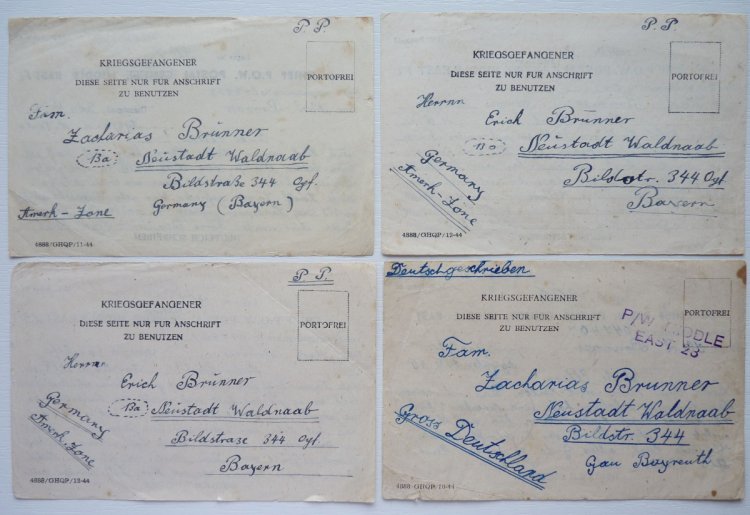 P. P.
KRIEGSGEFANGENER
DIESE SEITE NUR FUR ANSCHRIFT
ZU BENUTZEN
PORTOFREI
Fam.
Zacharias Brünner
13a Neustadt Waldnaab
Bildstraße 344 Opf.
Amerk-Zone Germany (Bayern)
4888/GHQP/11-44
P. P.
KRIEGSGEFANGENER
DIESE SEITE NUR FUR ANSCHRIFT
ZU BENUTZEN
PORTOFREI
Herrnn
Erich Brünner
13a Neustadt Waldnaab
Germany
Amerk-Zone
Bildstr. 344 Opf
Bayern
4888/GHQP/12-44
P. P.
KRIEGSGEFANGENER
DIESE SEITE NUR FUR ANSCHRIFT
ZU BENUTZEN
PORTOFREI
Erich Brünner
13a Neustadt Waldnaab
Germany
Amerk. Zone
Bildstraze 344 Opf.
Bayern
Deutschgeschrieben
KRIEGSGEFANGENER
DIESE SEITE NUR FUR ANSCHRIFT
ZU BENUTZEN
PORTOFREI
P/W MIDDLE
EAST 23
Fam.
Zacharias Brunner
Neustadt Waldnaab
Gross Deutschland
Bildstr. 344
Gau Bayreuth